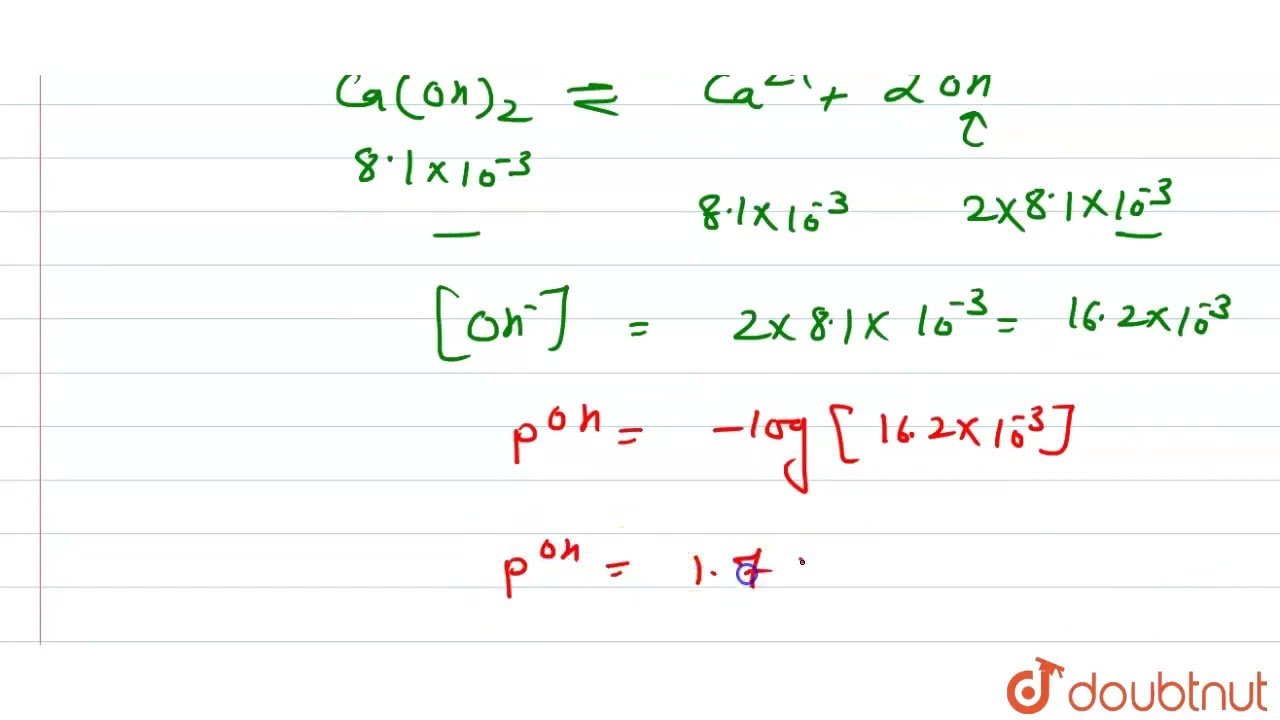 Ca(OH)₂ ⇌ Ca²⁺ + 2OH
8.1×10⁻³
8.1×10⁻³ 2×8.1×10⁻³
[OH⁻] = 2×8.1×10⁻³ = 16.2×10⁻³
pᴼᴴ = -log[16.2×10⁻³]
pᴼᴴ = 1.7
doubtnut